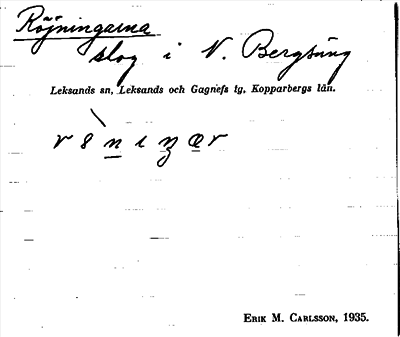 Röjningarna
slog i N. Bergsäng
Leksands sn, Leksands och Gagnefs tg, Kopparbergs län.
ERIK M. CARLSSON, 1935.